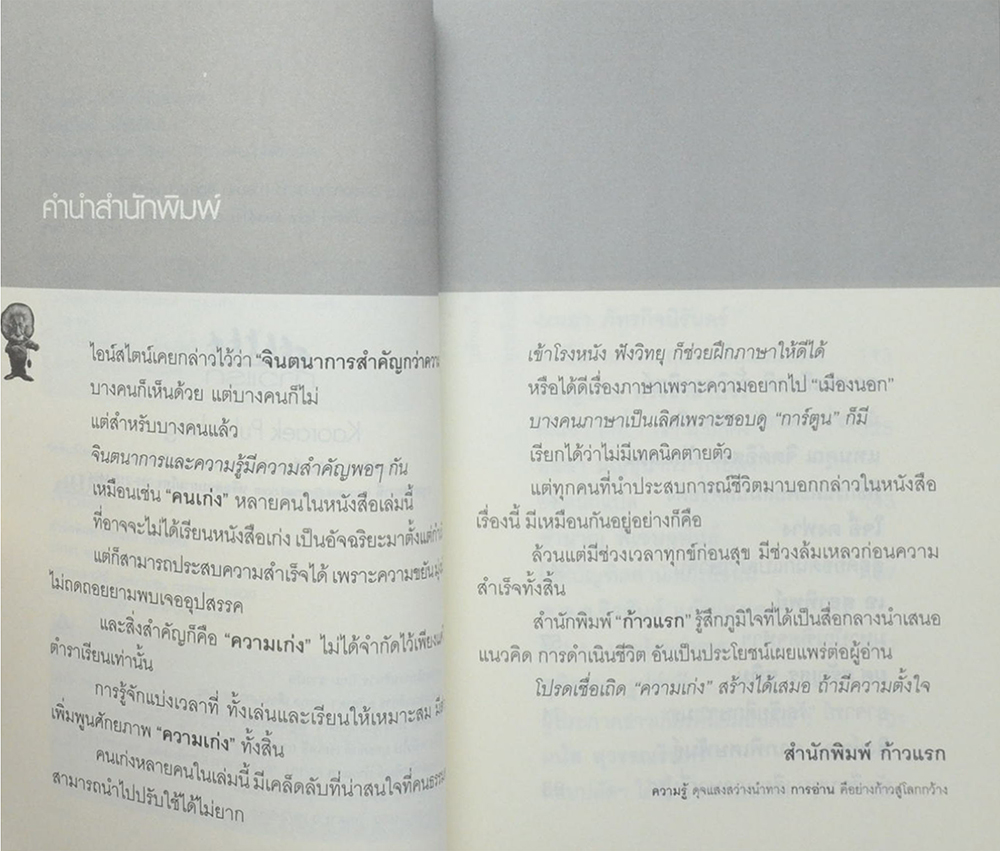 คำนำสำนักพิมพ์
ไอน์สไตน์เคยกล่าวไว้ว่า “จินตนาการสำคัญกว่าความ
บางคนก็เห็นด้วย แต่บางคนก็ไม่
แต่สำหรับบางคนแล้ว
จินตนาการและความรู้มีความสำคัญพอๆ กัน
เหมือนเช่น “คนเก่ง” หลายคนในหนังสือเล่มนี้
ที่อาจจะไม่ได้เรียนหนังสือเก่ง เป็นอัจฉริยะมาตั้งแต่
แต่ก็สามารถประสบความสำเร็จได้ เพราะความขยัน
ไม่ถดถอยยามพบเจออุปสรรค
และสิ่งสำคัญก็คือ “ความเก่ง” ไม่ได้จำกัดไว้เพียง
ตำราเรียนเท่านั้น
การรู้จักแบ่งเวลาที่ ทั้งเล่นและเรียนให้เหมาะสม
เพิ่มพูนศักยภาพ “ความเก่ง” ทั้งสิ้น
คนเก่งหลายคนในเล่มนี้ มีเคล็ดลับที่น่าสนใจที่คน
สามารถนำไปปรับใช้ได้ไม่ยาก
เข้าโรงหนัง ฟังวิทยุ ก็ช่วยฝึกภาษาให้ดีได้
หรือได้ดีเรื่องภาษาเพราะความอยากไป “เมืองนอก”
บางคนภาษาเป็นเลิศเพราะชอบดู “การ์ตูน” ก็มี
เรียกได้ว่าไม่มีเทคนิคตายตัว
แต่ทุกคนที่นำประสบการณ์ชีวิตมาบอกกล่าวในหนังสือ
เรื่องนี้ มีเหมือนกันอยู่อย่างก็คือ
ล้วนแต่มีช่วงเวลาทุกข์ก่อนสุข มีช่วงล้มเหลวก่อนความ
สำเร็จทั้งสิ้น
สำนักพิมพ์ “ก้าวแรก” รู้สึกภูมิใจที่ได้เป็นสื่อกลางนำเสนอ
แนวคิด การดำเนินชีวิต อันเป็นประโยชน์เผยแพร่ต่อผู้อ่าน
โปรดเชื่อเถิด “ความเก่ง” สร้างได้เสมอ ถ้ามีความตั้งใจ
สำนักพิมพ์ ก้าวแรก
ความรู้ ดุจแสงสว่างนำทาง การอ่าน คืออย่างก้าวสู่โลกกว้าง